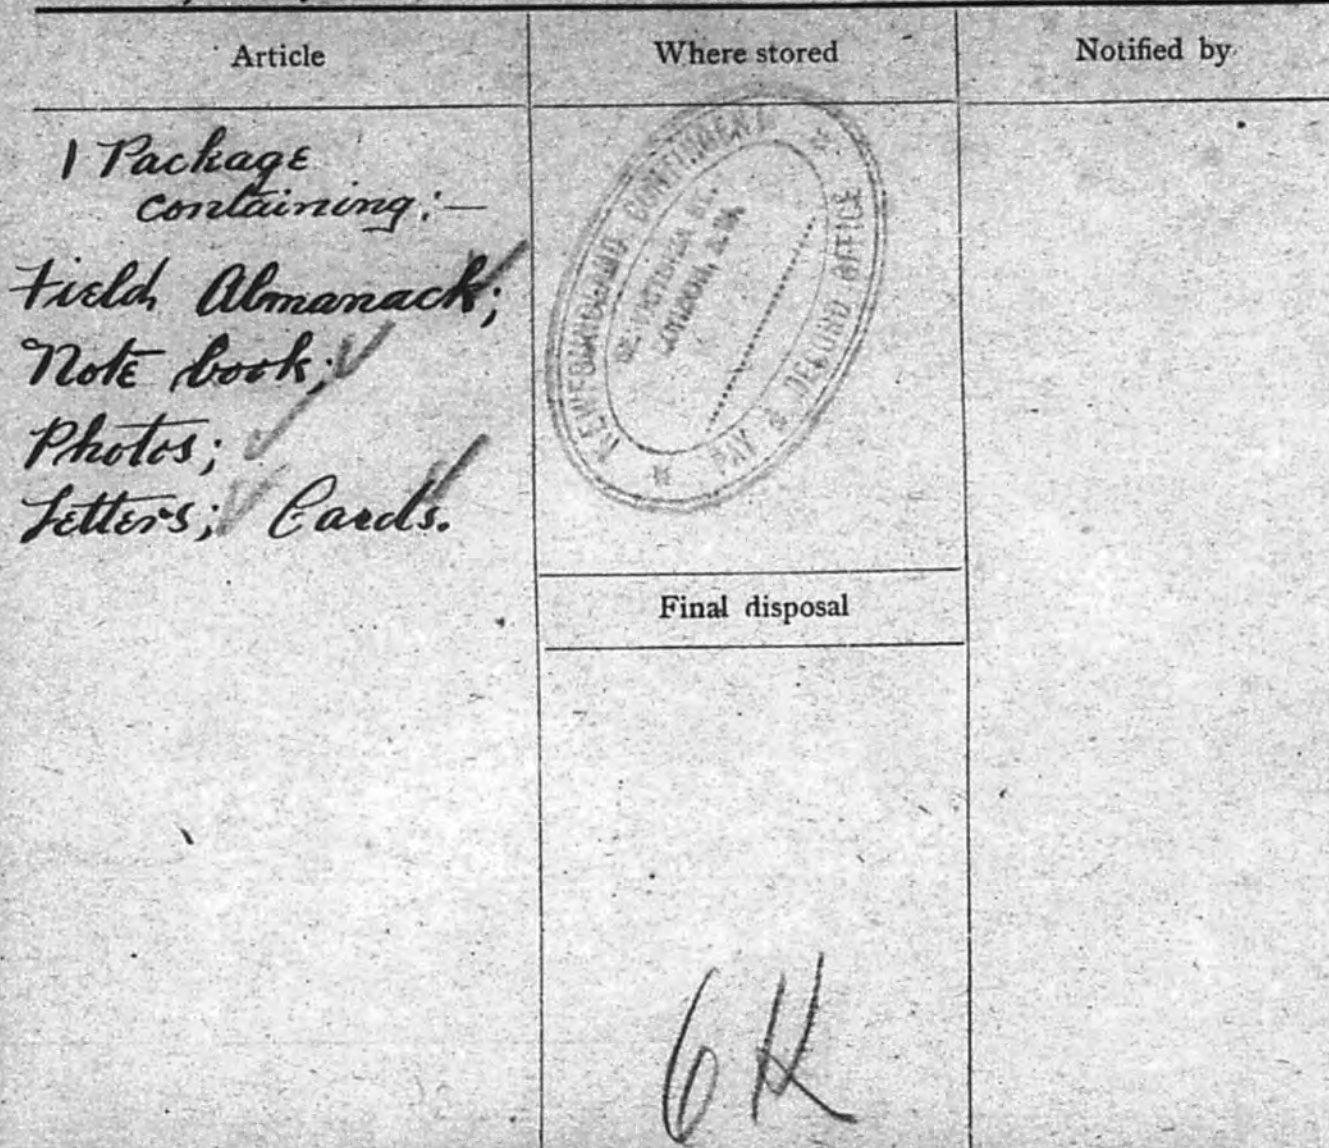 Article
Where stored
Notified by
1 Package
containing:—
Field Almanack;
Note book;
Photos;
Letters; Cards.
NEWFOUNDLAND CONTINGENT
VICTORIA ST.
LONDON, S.W.
PAY & RECORD OFFICE
Final disposal
6 K